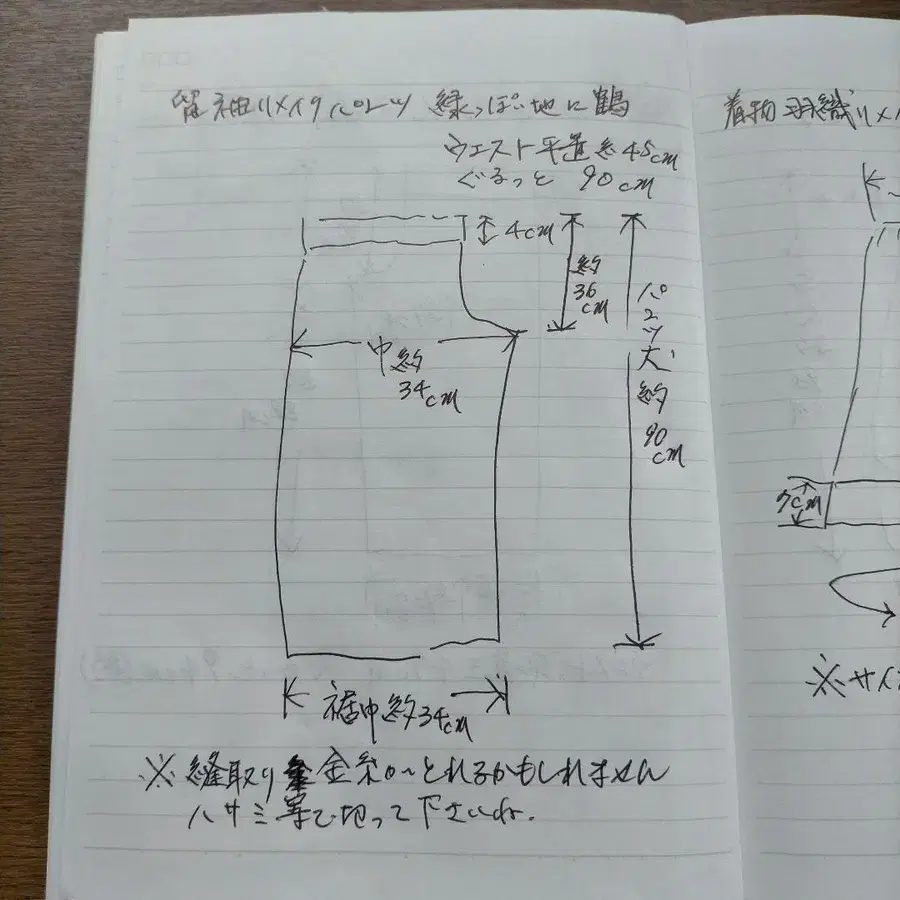 留袖リメイクパンツ 緑っぽい地に鶴
ウエスト平置き45cm
ぐるっと 90cm
4cm
約
36
cm
パンツ丈
約
90
cm
巾約
34cm
裾巾約34cm
※縫取り 金糸 とれるかもしれません
ハサミ等で切って下さいね。
着物羽織リメイ
7cm
※サイ